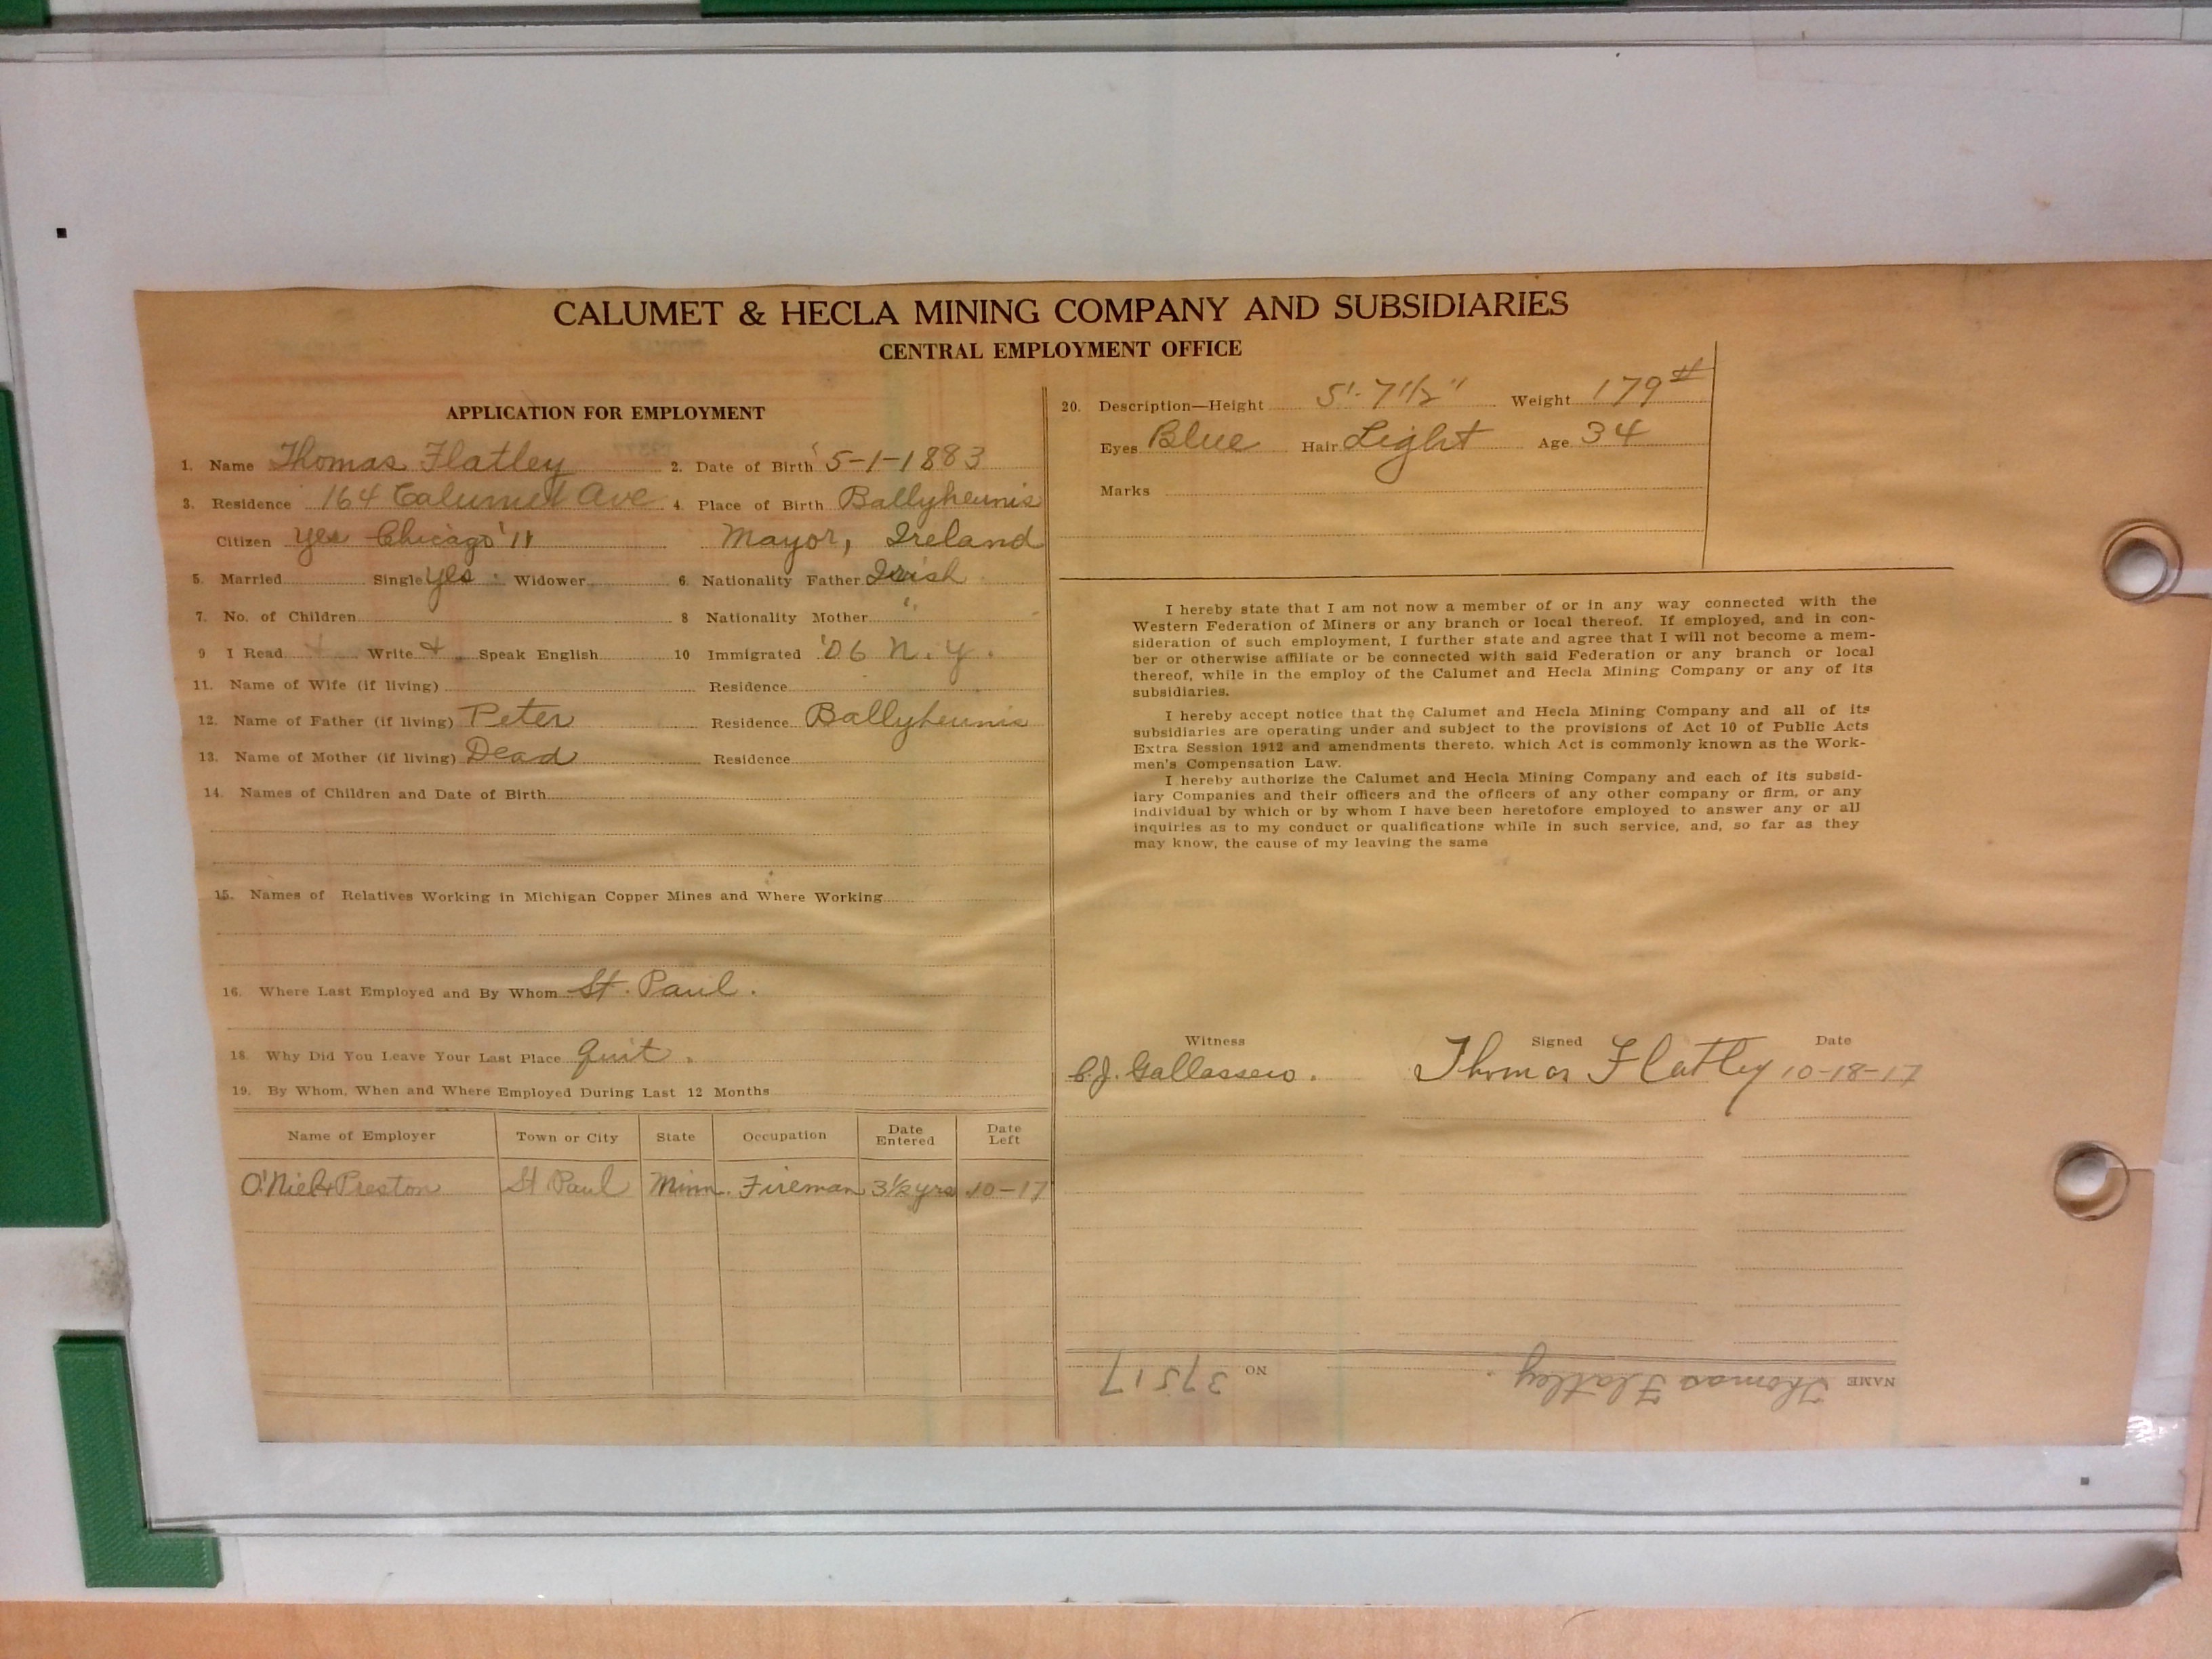 CALUMET & HECLA MINING COMPANY AND SUBSIDIARIES
CENTRAL EMPLOYMENT OFFICE
APPLICATION FOR EMPLOYMENT
1. Name Thomas Flatley 2. Date of Birth 5-1-1883
3. Residence 164 Calumet Ave 4. Place of Birth Ballyheunis
Citizen yes Chicago '11 Mayor, Ireland
5. Married Single yes Widower 6. Nationality Father Irish
7. No. of Children 8 Nationality Mother "
9 I Read + Write + Speak English 10 Immigrated '06 N.Y.
11. Name of Wife (if living) Residence
12. Name of Father (if living) Peter Residence Ballyheunis
13. Name of Mother (if living) Dead Residence
14. Names of Children and Date of Birth
15. Names of Relatives Working in Michigan Copper Mines and Where Working
16. Where Last Employed and By Whom St. Paul.
18. Why Did You Leave Your Last Place Quit.
19. By Whom, When and Where Employed During Last 12 Months
Name of Employer Town or City State Occupation Date Entered Date Left
O'Niel & Preston St Paul Minn. Fireman 3½ yrs 10-17
20. Description—Height 5'-7 1/2" Weight 179#
Eyes Blue Hair Light Age 34
Marks
I hereby state that I am not now a member of or in any way connected with the
Western Federation of Miners or any branch or local thereof. If employed, and in con-
sideration of such employment, I further state and agree that I will not become a mem-
ber or otherwise affiliate or be connected with said Federation or any branch or local
thereof, while in the employ of the Calumet and Hecla Mining Company or any of its
subsidiaries.
I hereby accept notice that the Calumet and Hecla Mining Company and all of its
subsidiaries are operating under and subject to the provisions of Act 10 of Public Acts
Extra Session 1912 and amendments thereto, which Act is commonly known as the Work-
men's Compensation Law.
I hereby authorize the Calumet and Hecla Mining Company and each of its subsid-
iary Companies and their officers and the officers of any other company or firm, or any
individual by which or by whom I have been heretofore employed to answer any or all
inquiries as to my conduct or qualifications while in such service, and, so far as they
may know, the cause of my leaving the same
Witness Signed Date
Thomas Flatley 10-18-17
NAME Thomas Flatley. NO 37517